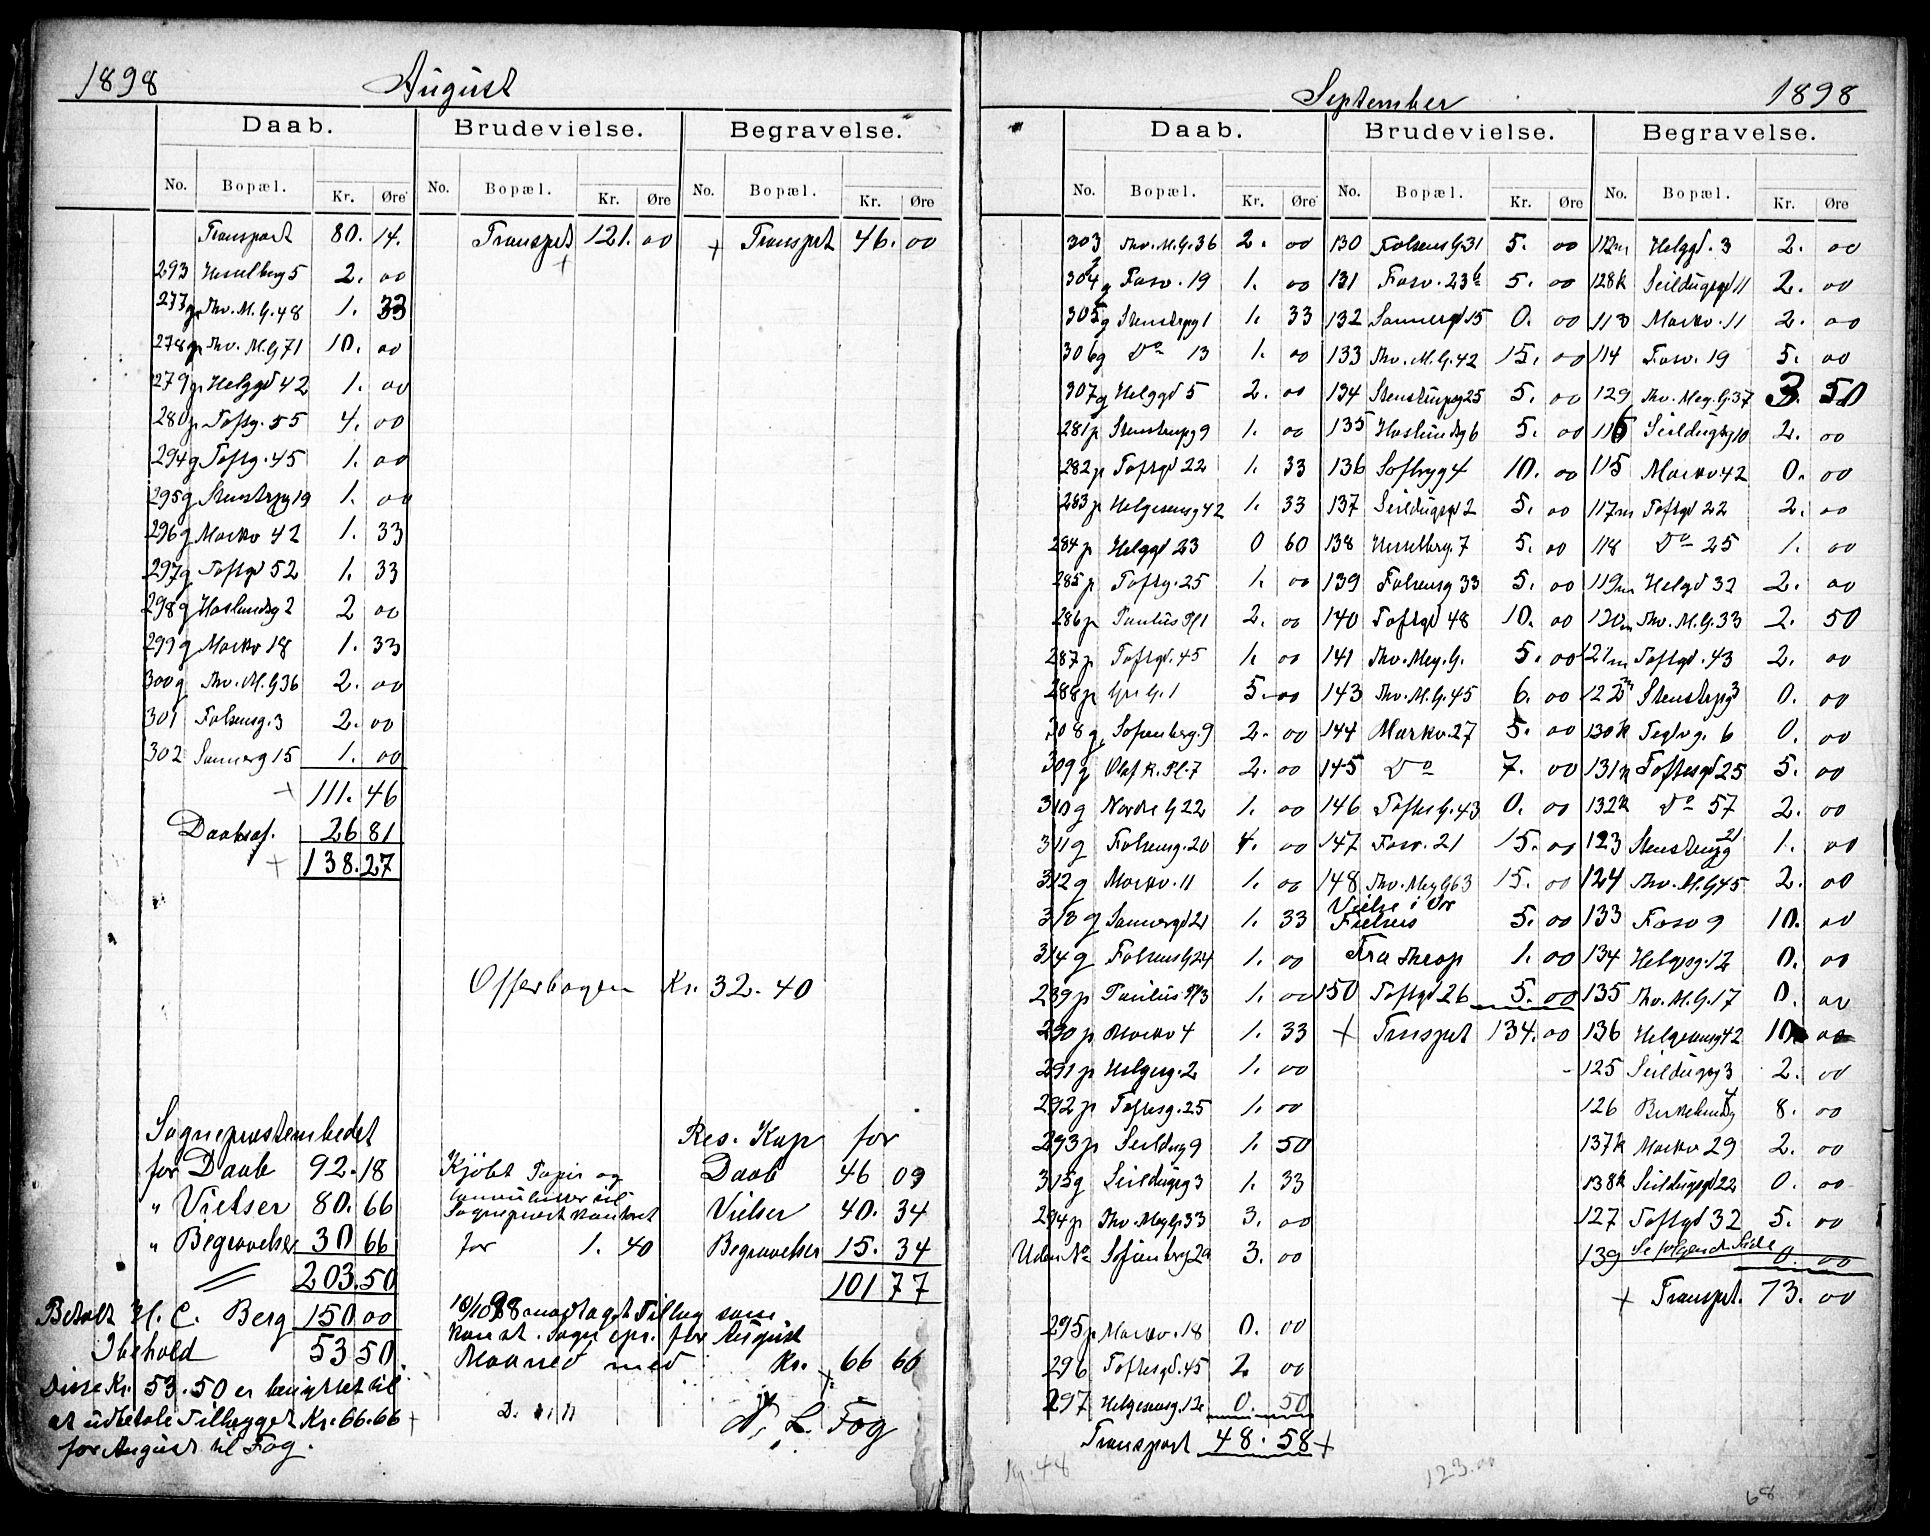 1898 August
Daab. Brudevielse. Begravelse.
No. Bopæl. Kr. Øre No. Bopæl. Kr. Øre No. Bopæl. Kr. Øre
Transport 80. 14. Transpt 121. 00 + Transpt 46. 00
293 Hesselberg 5 2. 00
277g Thv. M. G. 48 1. 33
278g Thv. M. G 71 10. 00
279g Helggd 42 1. 00
280p Toftg. 55 4. 00
294g Toftg. 45 1. 00
295g Stenstrpg 19 1. 00
296g Markv 42 1. 33
297g Toftgd 52 1. 33
298g Haslundsg 2 2 00
299g Markv 18 1. 33
300g Thv. M. G 36 2. 00
301 Falsensg. 3 2. 00
302 Sannerg 15 1. 00
+ 111. 46
Daabsaf. 26 81
+ 138. 27
Offerbogen Kr. 32. 40
Sogneprestembedet
for Daab 92. 18
" Vielser 80. 66
" Begravelser 30 66
203. 50
Betalt H. C. Berg 150 00
Ibehold 53 50
Disse Kr. 53. 50 er benyttet til
at udbetale Tillægget Kr. 66. 66 +
for August til Fog.
Kjøbt Papir og
til
Sogneprest Kontoret
for 1. 40
Res. Kap for
Daab 46 09
Vielser 40. 34
Begravelser 15. 34
101 77
10/10 98 modtaget Tillæg som
konst. Sognepr. for August
Maaned med Kr. 66 66
L. Fog
September 1898
Daab. Brudevielse. Begravelse.
No. Bopæl. Kr. Øre No. Bopæl. Kr. Øre No. Bopæl. Kr. Øre
303 Thv. M. G. 36 2. 00 130 Falsens G. 31 5. 00 112m Helggd. 3 2. 00
304g Fosv. 19 1. 00 131 Fosv. 23b 5. 00 128k Seildugsgd 11 2. 00
305g Stenstrpg 1 1. 33 132 Sannergd 15 0. 00 113 Markv. 11 2. 00
306g Do 13 1. 00 133 Thv. M. G. 42 15. 00 114 Fosv. 19 5. 00
307g Helggd 5 2. 00 134 Stenstrupg 25 5. 00 129 Thv. Mey. G. 37 3. 50
281p Stenstrupg 9 1. 00 135 Haslundsg 6 5. 00 116 Seildugsg 10 2. 00
282p Toftgd 22 1. 33 136 Sofbyg 4 10. 00 115 Markv 42 0. 00
283p Helgesensg 42 1. 33 137 Seildugsgd 2 5. 00 117m Toftgd 22 2. 00
284p Helggd 23 0 60 138 Hesselbrg. 7 5. 00 118 Do 25 1. 00
285p Toftg. 25 1. 00 139 Falsensg 33 5. 00 119m Helgd 32 2. 00
286p Paulus Pl 1 2. 00 140 Toftgd 48 10. 00 120m Thv. M. G. 33 2. 50
287p Toftgd. 45 1. 00 141 Thv. Mey. G. 5. 00 121m Toftgd. 43 2. 00
288p G. 1 5. 00 143 Thv. M. G. 45 6. 00 122m Stenstrpg 3 0. 00
308g Sofienberg. 9 2. 00 144 Markv. 27 5. 00 130k Teglvg. 6 0. 00
309g Olaf R. Pl. 7 2. 00 145 Do 7. 00 131k Toftesgd 25 5. 00
310g Nordre G 22 1. 00 146 Toftes G. 43 0. 00 132k Do 57 2. 00
311g Falsensg. 20 4. 00 147 Fosv. 21 15. 00 123 Stenstrupg 21 1. 00
312g Markv. 11 1. 00 148 Thv. Mey G 63 15. 00 124 Thv. M. G 45 2. 00
313g Sannergd 21 1. 33 Vielse i Vor Frelsers 5. 00 133 Fosv 9 10. 00
314g Falsens G 24 1. 00 Fra 1. 00 134 Helgesg. 12 0. 00
289p Paulus Pl 3 1. 00 150 Toftgd 26 5. 00 135 Thv. M. G. 17 0. 00
290p Markv 4 1. 33 + Transpt 134. 00 136 Helgesensg 42 10. 00
291p Helgesg. 2 1. 00 125 Seildugsg 3 2. 00
292p Toftesg. 25 1. 00 126 Birkelundg 8. 00
293p Seildug 9 1. 50 137k Markv 29 2. 00
315g Seildugsg 3 1. 33 138k Seildugsgd 22 0. 00
294p Thv. Mey G. 33 3. 00 127 Toftgd 32 5. 00
Uden No Sofienberg 2a 3. 00 139 Se følgende Side 0. 00
+ Transpt. 73. 00
295p Markv. 18 0. 00
296 Toftesgd. 45 2 00
297 Helgesensg. 12 0. 50
Transport 48. 58 +
44 123.00 68